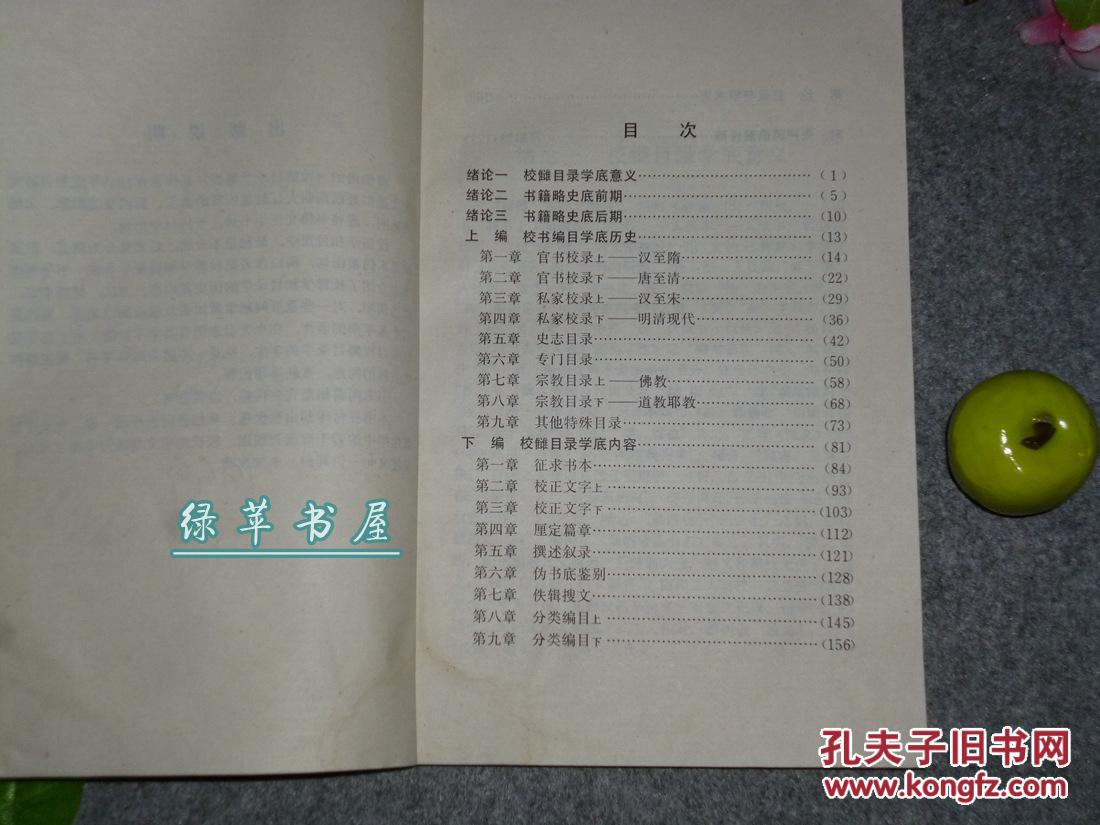 目 次
绪论一 校雠目录学底意义……(1)
绪论二 书籍略史底前期……(5)
绪论三 书籍略史底后期……(10)
上 编 校书编目学底历史……(13)
第一章 官书校录上——汉至隋……(14)
第二章 官书校录下——唐至清……(22)
第三章 私家校录上——汉至宋……(29)
第四章 私家校录下——明清现代……(36)
第五章 史志目录……(42)
第六章 专门目录……(50)
第七章 宗教目录上——佛教……(58)
第八章 宗教目录下——道教耶教……(68)
第九章 其他特殊目录……(73)
下 编 校雠目录学底内容……(81)
第一章 征求书本……(84)
第二章 校正文字上……(93)
第三章 校正文字下……(103)
第四章 厘定篇章……(112)
第五章 撰述叙录……(121)
第六章 伪书底鉴别……(128)
第七章 佚辑搜文……(138)
第八章 分类编目上……(145)
第九章 分类编目下……(156)
绿苹书屋
孔夫子旧书网
www.kongfz.com